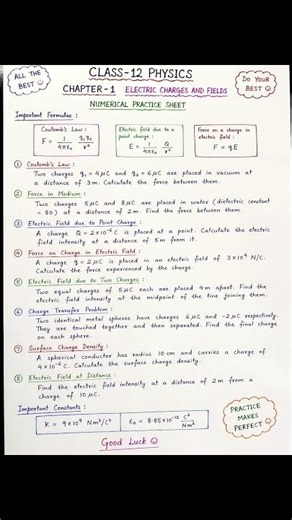 ALL THE BEST ☺
CLASS-12 PHYSICS
DO YOUR BEST ☺
CHAPTER-1 ELECTRIC CHARGES AND FIELDS
NUMERICAL PRACTICE SHEET
Important Formulae :
Coulomb's Law :
F = 1/4πε₀ q₁q₂/r²
Electric field due to a point charge :
E = 1/4πε₀ Q/r²
Force on a charge in electric field :
F = qE
① Coulomb's Law :
Two charges q₁ = 4μC and q₂ = 6μC are placed in vacuum at
a distance of 3m. Calculate the force between them.
② Force in Medium :
Two charges 5μC and 8μC are placed in water (dielectric constant
= 80) at a distance of 2m. Find the force between them.
③ Electric Field due to Point Charge :
A charge Q = 2×10⁻⁶ C is placed at a point. Calculate the electric
field intensity at a distance of 5m from it.
④ Force on Charge in Electric Field :
A charge q = 2μC is placed in an electric field of 3×10⁴ N/C.
Calculate the force experienced by the charge.
⑤ Electric Field due to Two Charges :
Two equal charges of 5μC each are placed 4m apart. Find the
electric field intensity at the midpoint of the line joining them.
⑥ Charge Transfer Problem :
Two identical metal spheres have charges 6μC and -2μC respectively.
They are touched together and then separated. Find the final charge
on each sphere.
⑦ Surface Charge Density :
A spherical conductor has radius 10cm and carries a charge of
4×10⁻⁶ C. Calculate the surface charge density.
⑧ Electric Field at Distance :
Find the electric field intensity at a distance of 2m from a
charge of 10μC.
Important Constants :
K = 9×10⁹ Nm²/C²
ε₀ = 8.85×10⁻¹² C²/Nm²
PRACTICE MAKES PERFECT ☺
Good Luck ☺